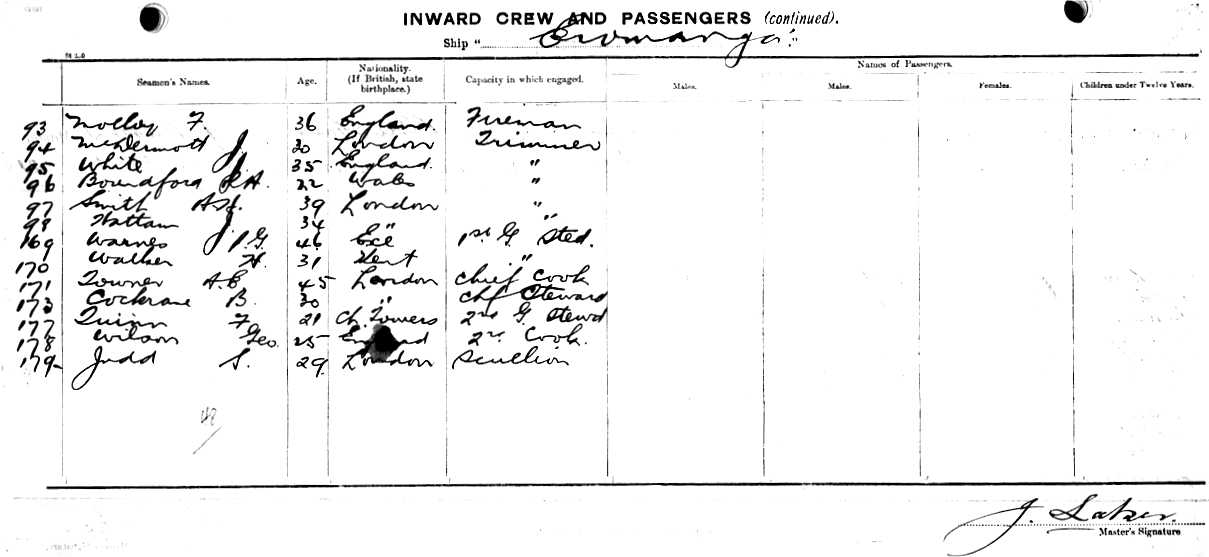 INWARD CREW AND PASSENGERS (continued).
Ship "Eromanga"
Seamen's Names. Age. Nationality. (If British, state birthplace.) Capacity in which engaged. Names of Passengers.
Males. Males. Females. Children under Twelve Years.
93 Molloy F. 36 England. Fireman
94 McDermott J. 30 London Trimmer
95 White J. 35 England. "
96 Boundford 22 Wales "
97 Smith 39 London "
98 Hattam J. 34 " "
169 Warnes P.G. 46 Exe 1st G. Sted.
170 Walker H. 31 Kent "
171 Towner A.E 45 London Chief Cook
173 Cochrane B. 30 " Chf Steward
177 Quinn F. 21 Ch. Towers 2nd G. Stewd
178 Wilson Geo. 25 England 2nd Cook.
179 Judd S. 29 London Scullion
48
J. Laker.
Master's Signature